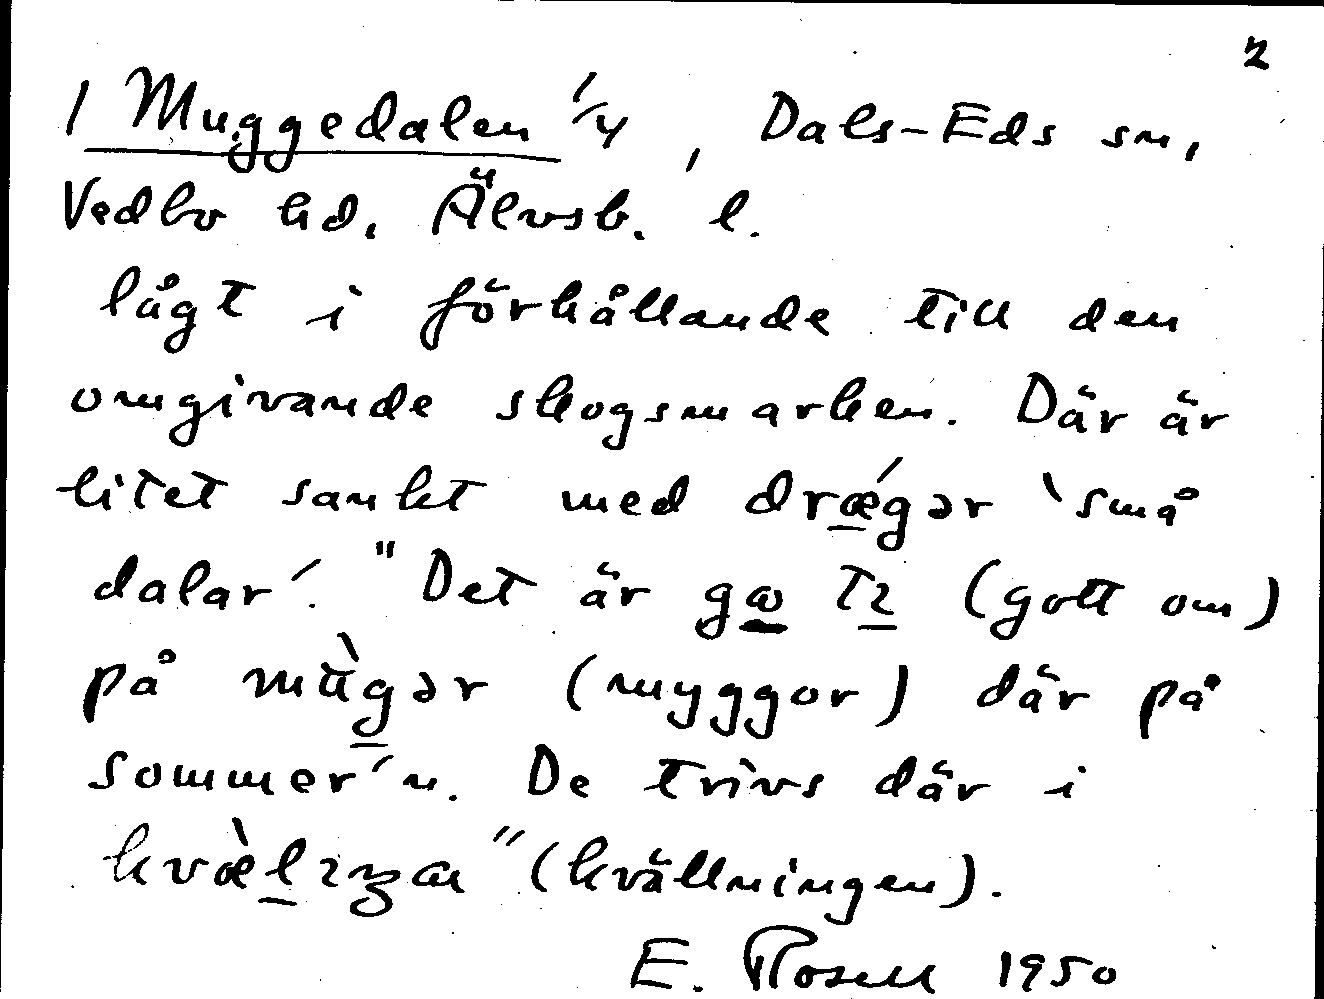 2
1 Muggedalen 1/4, Dals-Eds sn,
Vedbo hd. Älvsb. l.
lågt i förhållande till den
omgivande skogsmarken. Där är
litet sankt med drǽ̲gər 'små
dalar'. "Det är gω̲ tɪ̲ (gott om)
på mùg̲ər (myggor) där på
sommer'n. De trivs där i
kvæ̀l̲ɪŋan" (kvällningen).
E. Rosell 1950